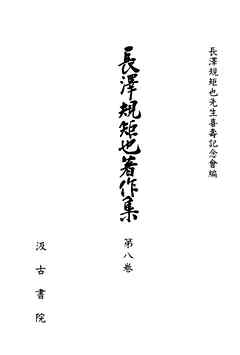 長澤規矩也先生喜壽記念會編
長澤規矩也著作集
第八卷
汲古書院